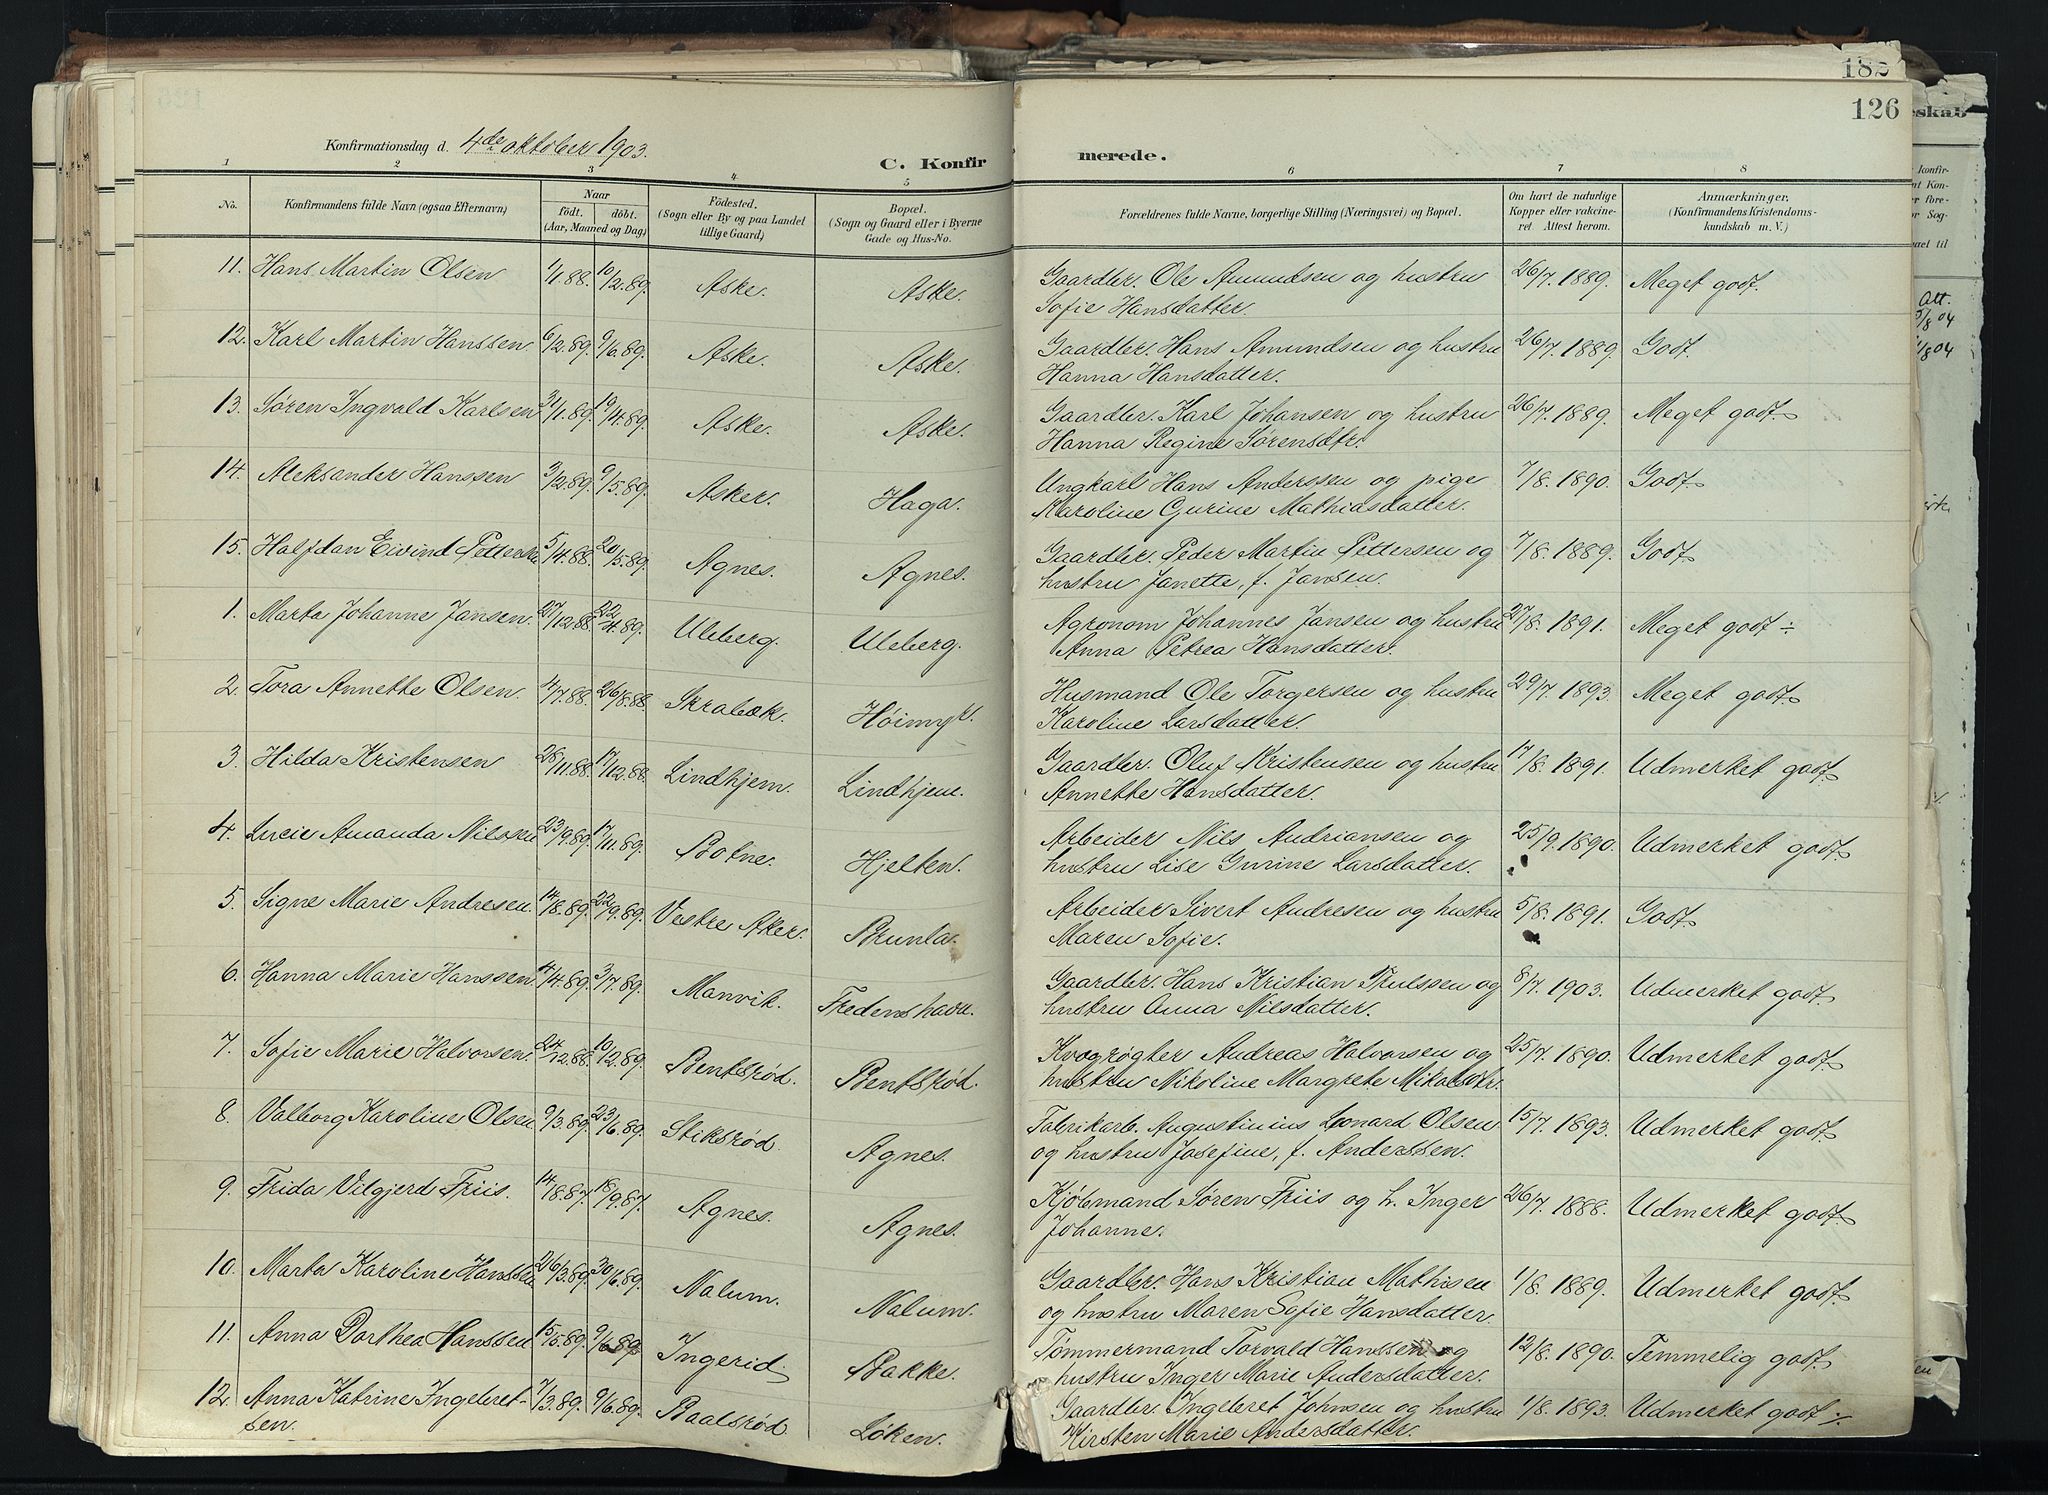 182
126
Konfirmationsdag d. 4de oktober 1903.
C. Konfirmerede.
1 2 3 4 5 6 7 8
No. Konfirmandens fulde Navn (ogsaa Efternavn) Naar født. døbt. (Aar, Maaned og Dag) Fødested. (Sogn eller By og paa Landet tillige Gaard) Bopæl. (Sogn og Gaard eller i Byerne Gade og Hus-No. Forældrenes fulde Navne, borgerlige Stilling (Næringsvei) og Bopæl. Om havt de naturlige Kopper eller vakcineret Attest herom. Anmærkninger. (Konfirmandens Kristendomskundskab m. V.)
11. Hans Martin Olsen 1/1.88. 10/2.89. Aske. Aske. Gaardbr. Ole Amundsen og hustru 26/7. 1889. Meget godt.
Sofie Hansdatter.
12. Karl Martin Hanssen 6/2.89. 9/6.89. Aske. Aske. Gaardbr. Hans Amundsen og hustru 26/7. 1889. Godt
Hanna Hansdatter.
13. Søren Ingvald Karlsen 3/1.89. 19/4.89. Aske. Aske. Gaardbr. Karl Johansen og hustru 26/7. 1889. Meget godt
Hanna Regine Sørensdtr.
14. Aleksander Hanssen 3/2.89. 9/5.89. Asker. Haga. Ungkarl Hans Anderssen og pige 7/8. 1890. Godt
Karoline Gurine Mathiasdatter.
15. Halfdan Eivind Petterse 5/4.88. 20/5.89. Agnes. Agnes. Gaardbr. Peder Martin Pettersen og 7/8. 1889. Godt
hustru Janette, f. Jansen.
1. Marta Johanne Jansen. 27/12.88. 22/4.89. Uleberg. Uleberg. Agronom Johannes Jansen og hustru 27/8. 1891. Meget godt ÷
Anna Petrea Hansdatter.
2. Tora Annette Olsen 4/7.88. 26/8.88. Skrabæk. Høimyr. Husmand Ole Torgersen og hustru 29/7. 1893. Meget godt
Karoline Larsdatter.
3. Hilda Kristensen 28/11.88. 17/12.88. Lindhjem. Lindhjem. Gaardbr. Oluf Kristensen og hustru 17/8. 1891. Udmerket godt
Annette Hansdatter.
4. Lucie Amanda Nilssen 23/9.89. 17/11.89. Botne. Hjelten. Arbeider Nils Andriansen og 25/9. 1890. Udmerket godt
hustru Lise Gurine Larsdatter.
5. Signe Marie Andresen. 14/8.89. 22/9.89. Vestre Aker. Brunla. Arbeider Sivert Andresen og hustru 5/8. 1891. Godt
Maren Sofie.
6. Hanna Marie Hanssen 4/4.89. 3/7.89. Manvik. Fredenshavn. Gaardbr. Hans Kristian Trulssen og 8/7. 1903. Udmerket godt
hustru Anna Nilsdatter.
7. Sofie Marie Halvorsen. 24/12.88. 10/12.89. Bentsrød. Bentsrød. Kvægrøgter Andreas Halvorsen og 25/7. 1890. Udmerket godt
hustru Nikoline Margrete Mikalsdtr.
8. Valborg Karoline Olsen 9/3.89. 23/6.89. Stiksrød. Agnes. Fabrikarb. Augustinius Leonard Olsen 15/7. 1893. Udmerket godt
og hustru Josefine, f. Anderssen.
9. Frida Vilgjerd Friis. 14/8.87. 18/9.87. Agnes. Agnes. Kjøbmand Søren Friis og h. Inger 26/7. 1888. Udmerket godt
Johanne.
10. Marta Karoline Hanssen 26/3.89. 30/6.89. Nalum. Nalum. Gaardbr. Hans Kristian Mathisen 1/8. 1889. Udmerket godt
og hustru Maren Sofie Hansdatter.
11. Anna Dorthea Hanssen 15/5.89. 9/6.89 Ingerid Bakke. Tømmermand Torvald Hanssen og 12/8. 1890. Temmelig godt
hustru Inger Marie Andersdatter.
12. Anna Katrine Ingebret- 7/3.89. 9/6.89. Baalsrød. Løken. Gaardbr. Ingebret Johnsen og hustru 1/8. 1893. Udmerket godt ÷
sen. Kirsten Marie Andersdatter.